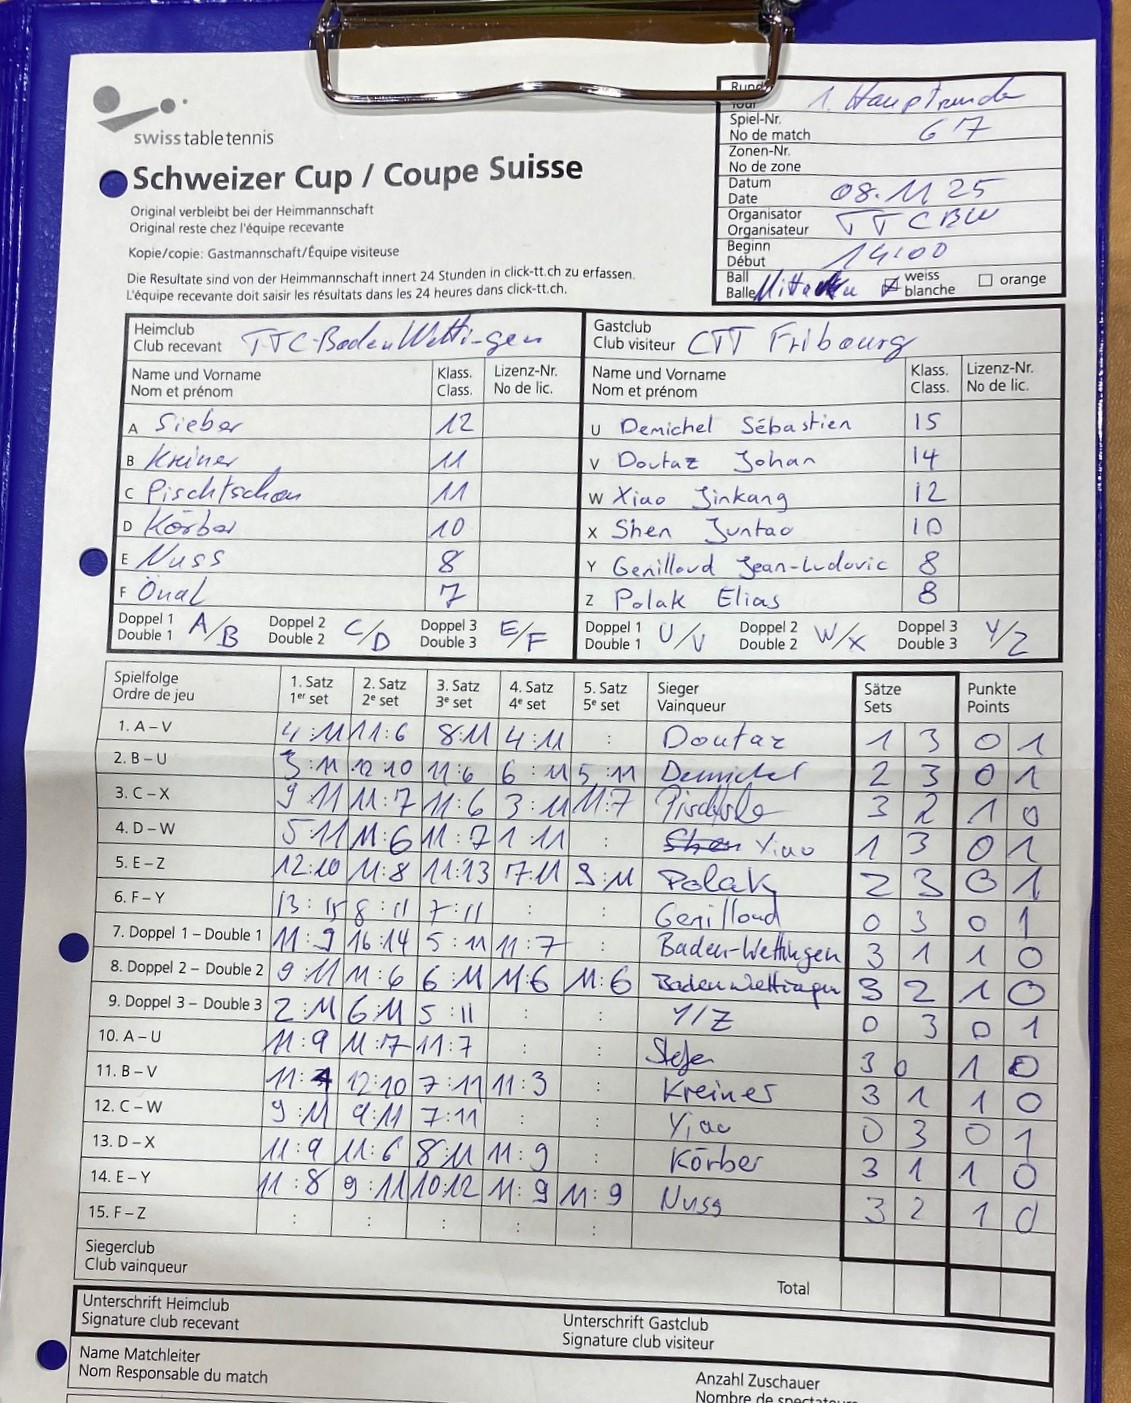 swisstabletennis
Schweizer Cup / Coupe Suisse
Original verbleibt bei der Heimmannschaft
Original reste chez l'équipe recevante
Kopie/copie: Gastmannschaft/Équipe visiteuse
Die Resultate sind von der Heimmannschaft innert 24 Stunden in click-tt.ch zu erfassen.
L'équipe recevante doit saisir les résultats dans les 24 heures dans click-tt.ch.
1. Hauptrunde
Spiel-Nr.
No de match 67
Zonen-Nr.
No de zone
Datum
Date 08.11.25
Organisator
Organisateur TTCBW
Beginn
Début 14:00
Ball weiss
Balle blanche orange
Heimclub
Club recevant TTC-Baden Wettingen
Gastclub
Club visiteur CTT Fribourg
Name und Vorname Klass. Lizenz-Nr. Name und Vorname Klass. Lizenz-Nr.
Nom et prénom Class. No de lic. Nom et prénom Class. No de lic.
A Sieber 12 U Demichel Sébastien 15
B Kreiner 11 V Doutaz Johan 14
C 11 W Xiao Jinkang 12
D Körber 10 X Shen Juntao 10
E Nuss 8 Y Genilloud Jean-Ludovic 8
F Önal 7 Z Polak Elias 8
Doppel 1 Doppel 2 Doppel 3 Doppel 1 Doppel 2 Doppel 3
Double 1 A/B Double 2 C/D Double 3 E/F Double 1 U/V Double 2 W/X Double 3 Y/Z
Spielfolge 1. Satz 2. Satz 3. Satz 4. Satz 5. Satz Sieger Sätze Punkte
Ordre de jeu 1er set 2e set 3e set 4e set 5e set Vainqueur Sets Points
1. A – V 4:11 11:6 8:11 4:11 : Doutaz 1 3 0 1
2. B – U 3:11 12:10 11:6 6:11 5:11 Demichel 2 3 0 1
3. C – X 9:11 11:7 11:6 3:11 11:7 3 2 1 0
4. D – W 5:11 11:6 11:7 1:11 : Xiao 1 3 0 1
5. E – Z 12:10 11:8 11:13 7:11 9:11 Polak 2 3 0 1
6. F – Y 13:15 8:11 7:11 : : Genilloud 0 3 0 1
7. Doppel 1 – Double 1 11:9 16:14 5:11 11:7 : Baden-Wettingen 3 1 1 0
8. Doppel 2 – Double 2 9:11 11:6 6:11 11:6 11:6 Baden Wettingen 3 2 1 0
9. Doppel 3 – Double 3 2:11 6:11 5:11 : : Y/Z 0 3 0 1
10. A – U 11:9 11:7 11:7 : : 3 0 1 0
11. B – V 11: 12:10 7:11 11:3 : Kreiner 3 1 1 0
12. C – W 9:11 9:11 7:11 : : 0 3 0 1
13. D – X 11:9 11:6 8:11 11:9 : Körber 3 1 1 0
14. E – Y 11:8 9:11 10:12 11:9 11:9 Nuss 3 2 1 0
15. F – Z : : : : :
Siegerclub
Club vainqueur
Total
Unterschrift Heimclub Unterschrift Gastclub
Signature club recevant Signature club visiteur
Name Matchleiter
Nom Responsable du match
Anzahl Zuschauer